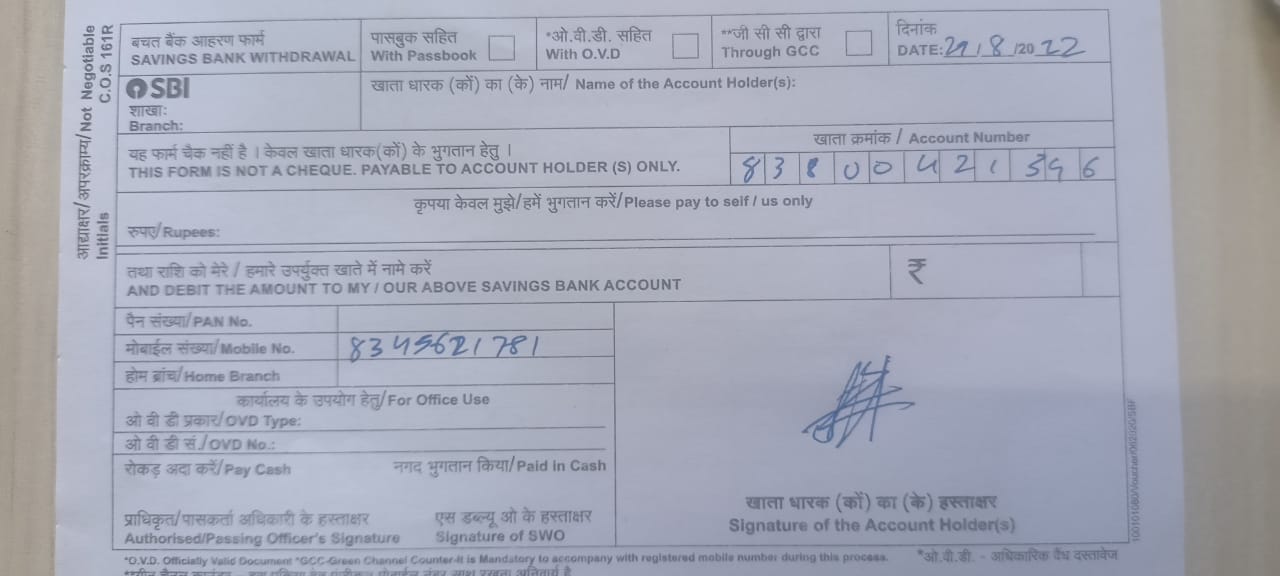 आद्याक्षर/अपरक्राम्य/Not Negotiable
Initials C.O.S 161R
बचत बैंक आहरण फार्म
SAVINGS BANK WITHDRAWAL
पासबुक सहित
With Passbook
*ओ.वी.डी. सहित
With O.V.D
**जी सी सी द्वारा
Through GCC
दिनांक
DATE: 29/8/2022
SBI
शाखाः
Branch:
खाता धारक (कों) का (के) नाम/ Name of the Account Holder(s):
यह फार्म चैक नहीं है । केवल खाता धारक(कों) के भुगतान हेतु ।
THIS FORM IS NOT A CHEQUE. PAYABLE TO ACCOUNT HOLDER (S) ONLY.
खाता क्रमांक / Account Number
8 3 8 0 0 4 2 1
कृपया केवल मुझे/हमें भुगतान करें/Please pay to self / us only
रुपए/Rupees:
तथा राशि को मेरे / हमारे उपर्युक्त खाते में नामे करें
AND DEBIT THE AMOUNT TO MY / OUR ABOVE SAVINGS BANK ACCOUNT
₹
पैन संख्या/PAN No.
मोबाईल संख्या/Mobile No. 8345621781
होम ब्रांच/Home Branch
कार्यालय के उपयोग हेतु/For Office Use
ओ वी डी प्रकार/OVD Type:
ओ वी डी सं./OVD No.:
रोकड़ अदा करें/Pay Cash
नगद भुगतान किया/Paid in Cash
प्राधिकृत/पासकर्ता अधिकारी के हस्ताक्षर
Authorised/Passing Officer's Signature
एस डब्ल्यू ओ के हस्ताक्षर
Signature of SWO
खाता धारक (कों) का (के) हस्ताक्षर
Signature of the Account Holder(s)
*O.V.D. Officially Valid Document *GCC-Green Channel Counter-It is Mandatory to accompany with registered mobile number during this process. *ओ.वी.डी. - अधिकारिक वैध दस्तावेज